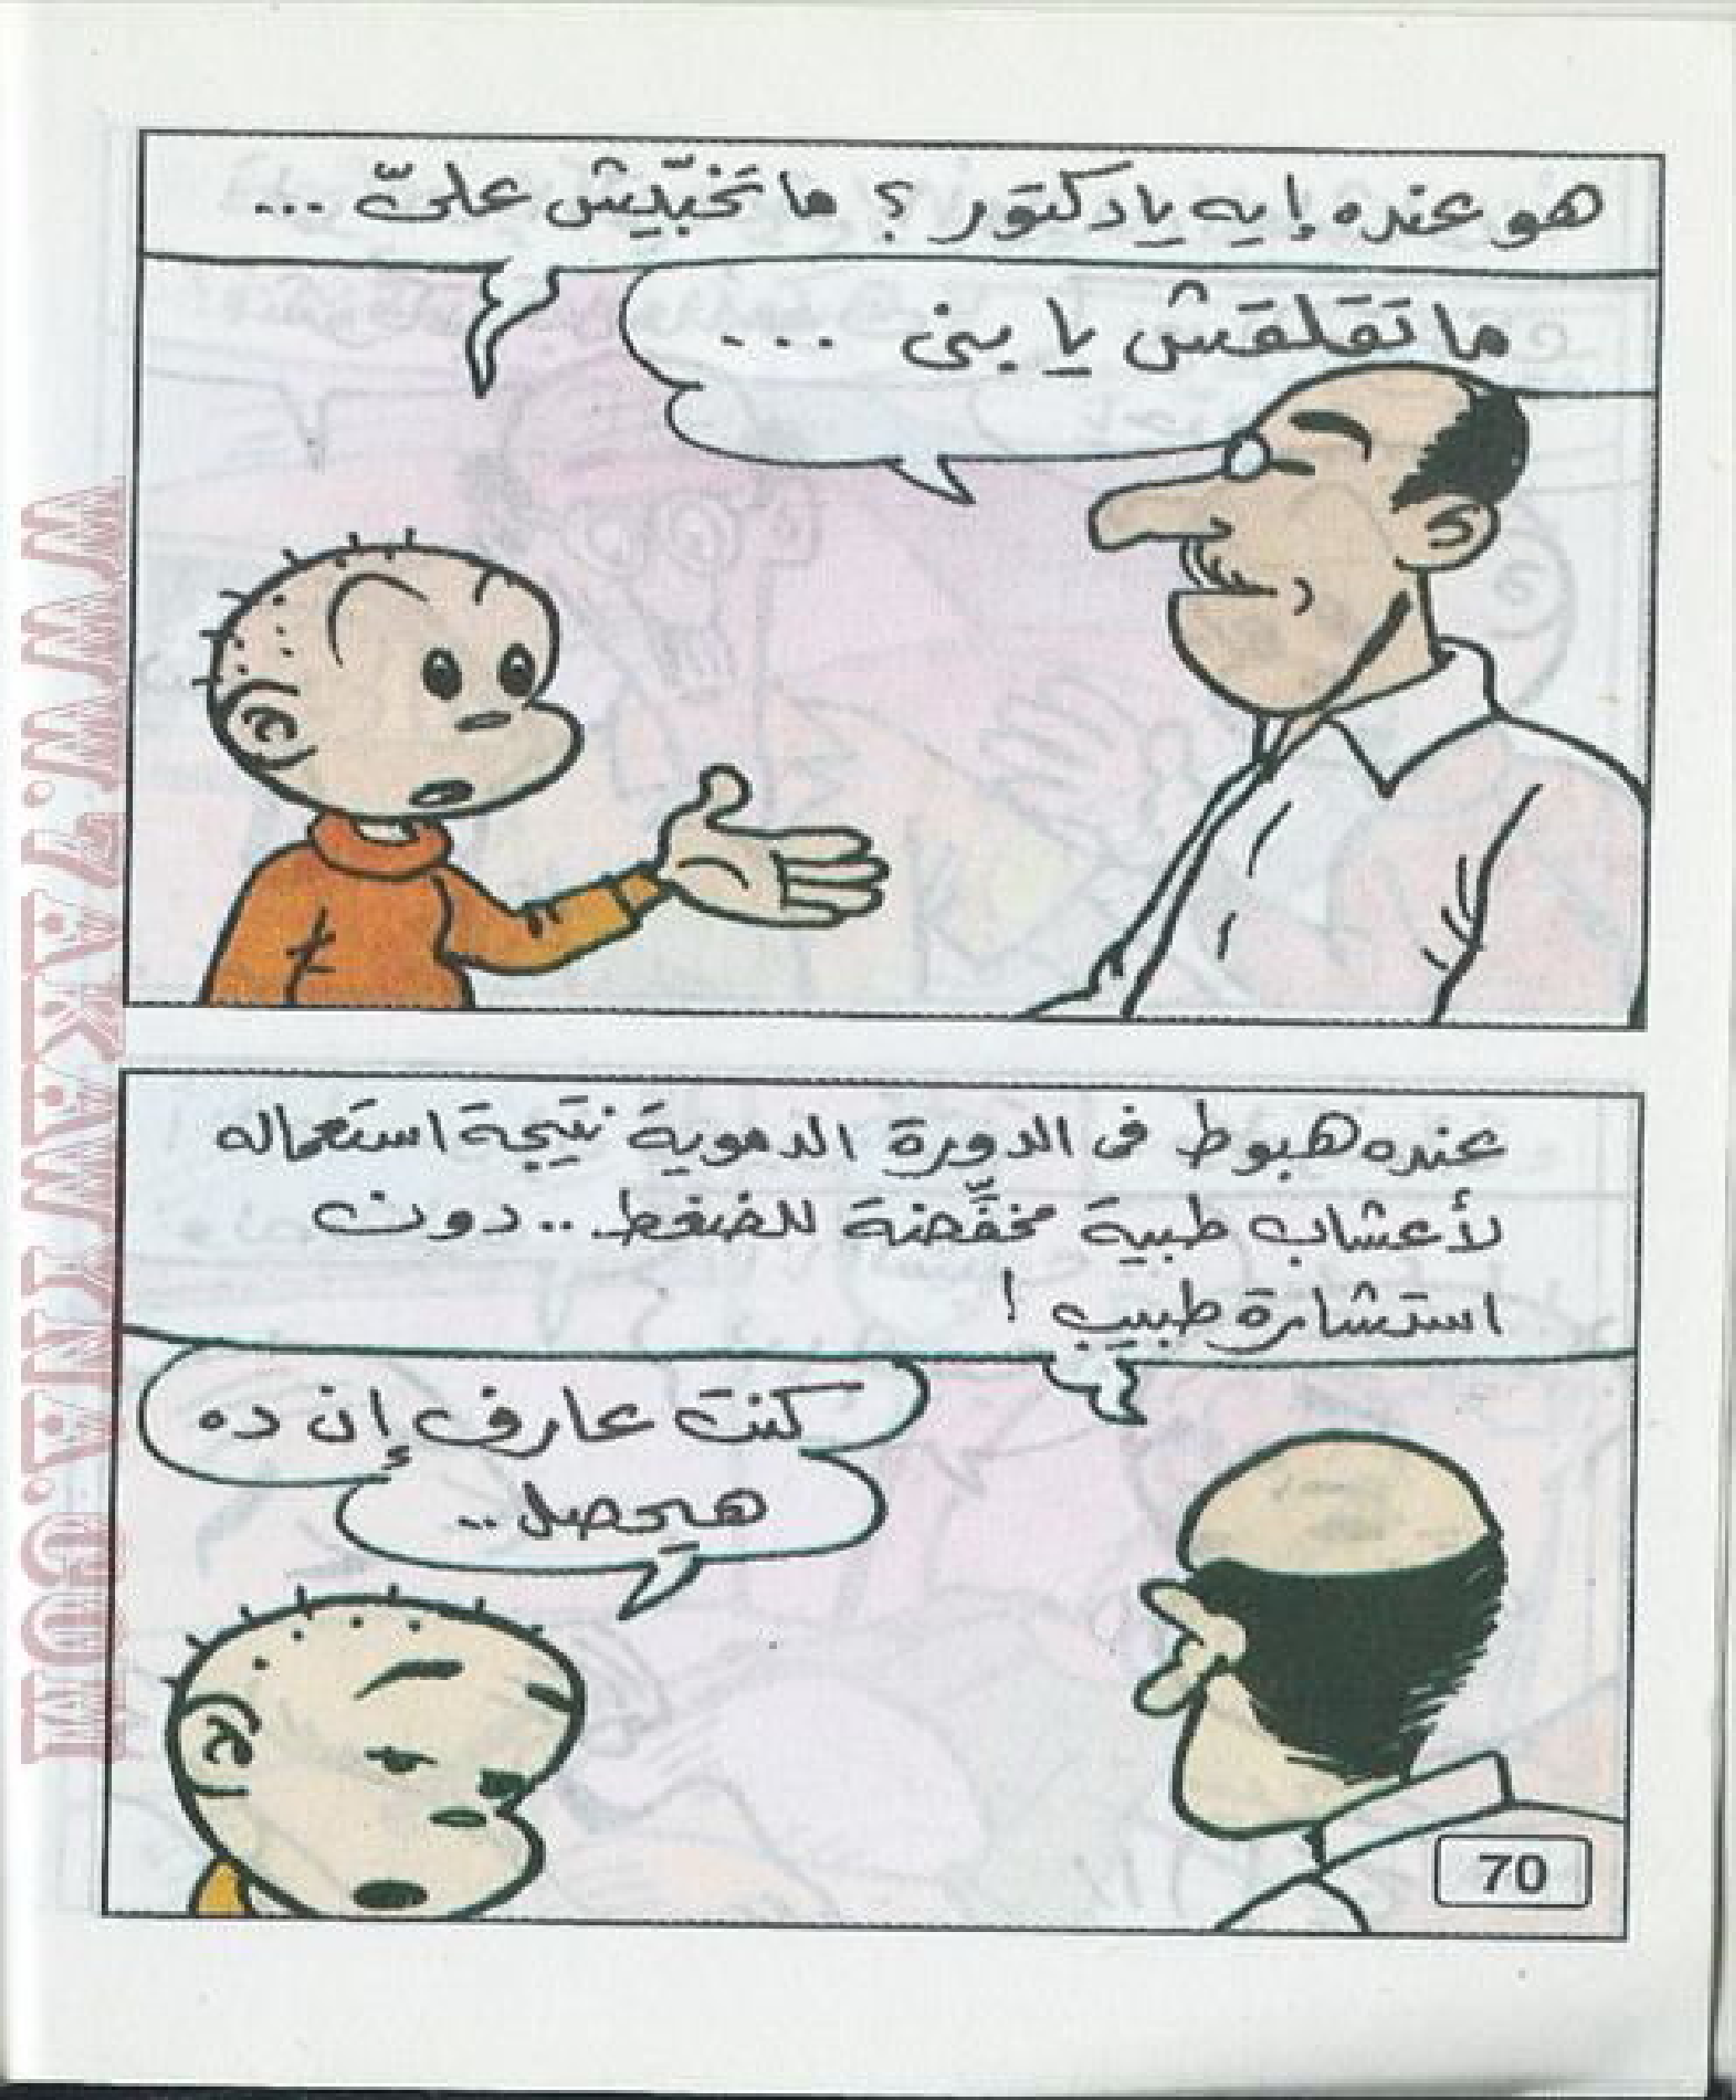 هو عنده إيه يا دكتور ؟ ما تخبّيش علىّ ...
ما تقلقش يا بنى ...
عنده هبوط فى الدورة الدموية نتيجة استعماله
لأعشاب طبية مخفّضة للضغط .. دون
استشارة طبيب !
كنت عارف إن ده
هيحصل ..
70
WWW.ZAKAWYNA.COM